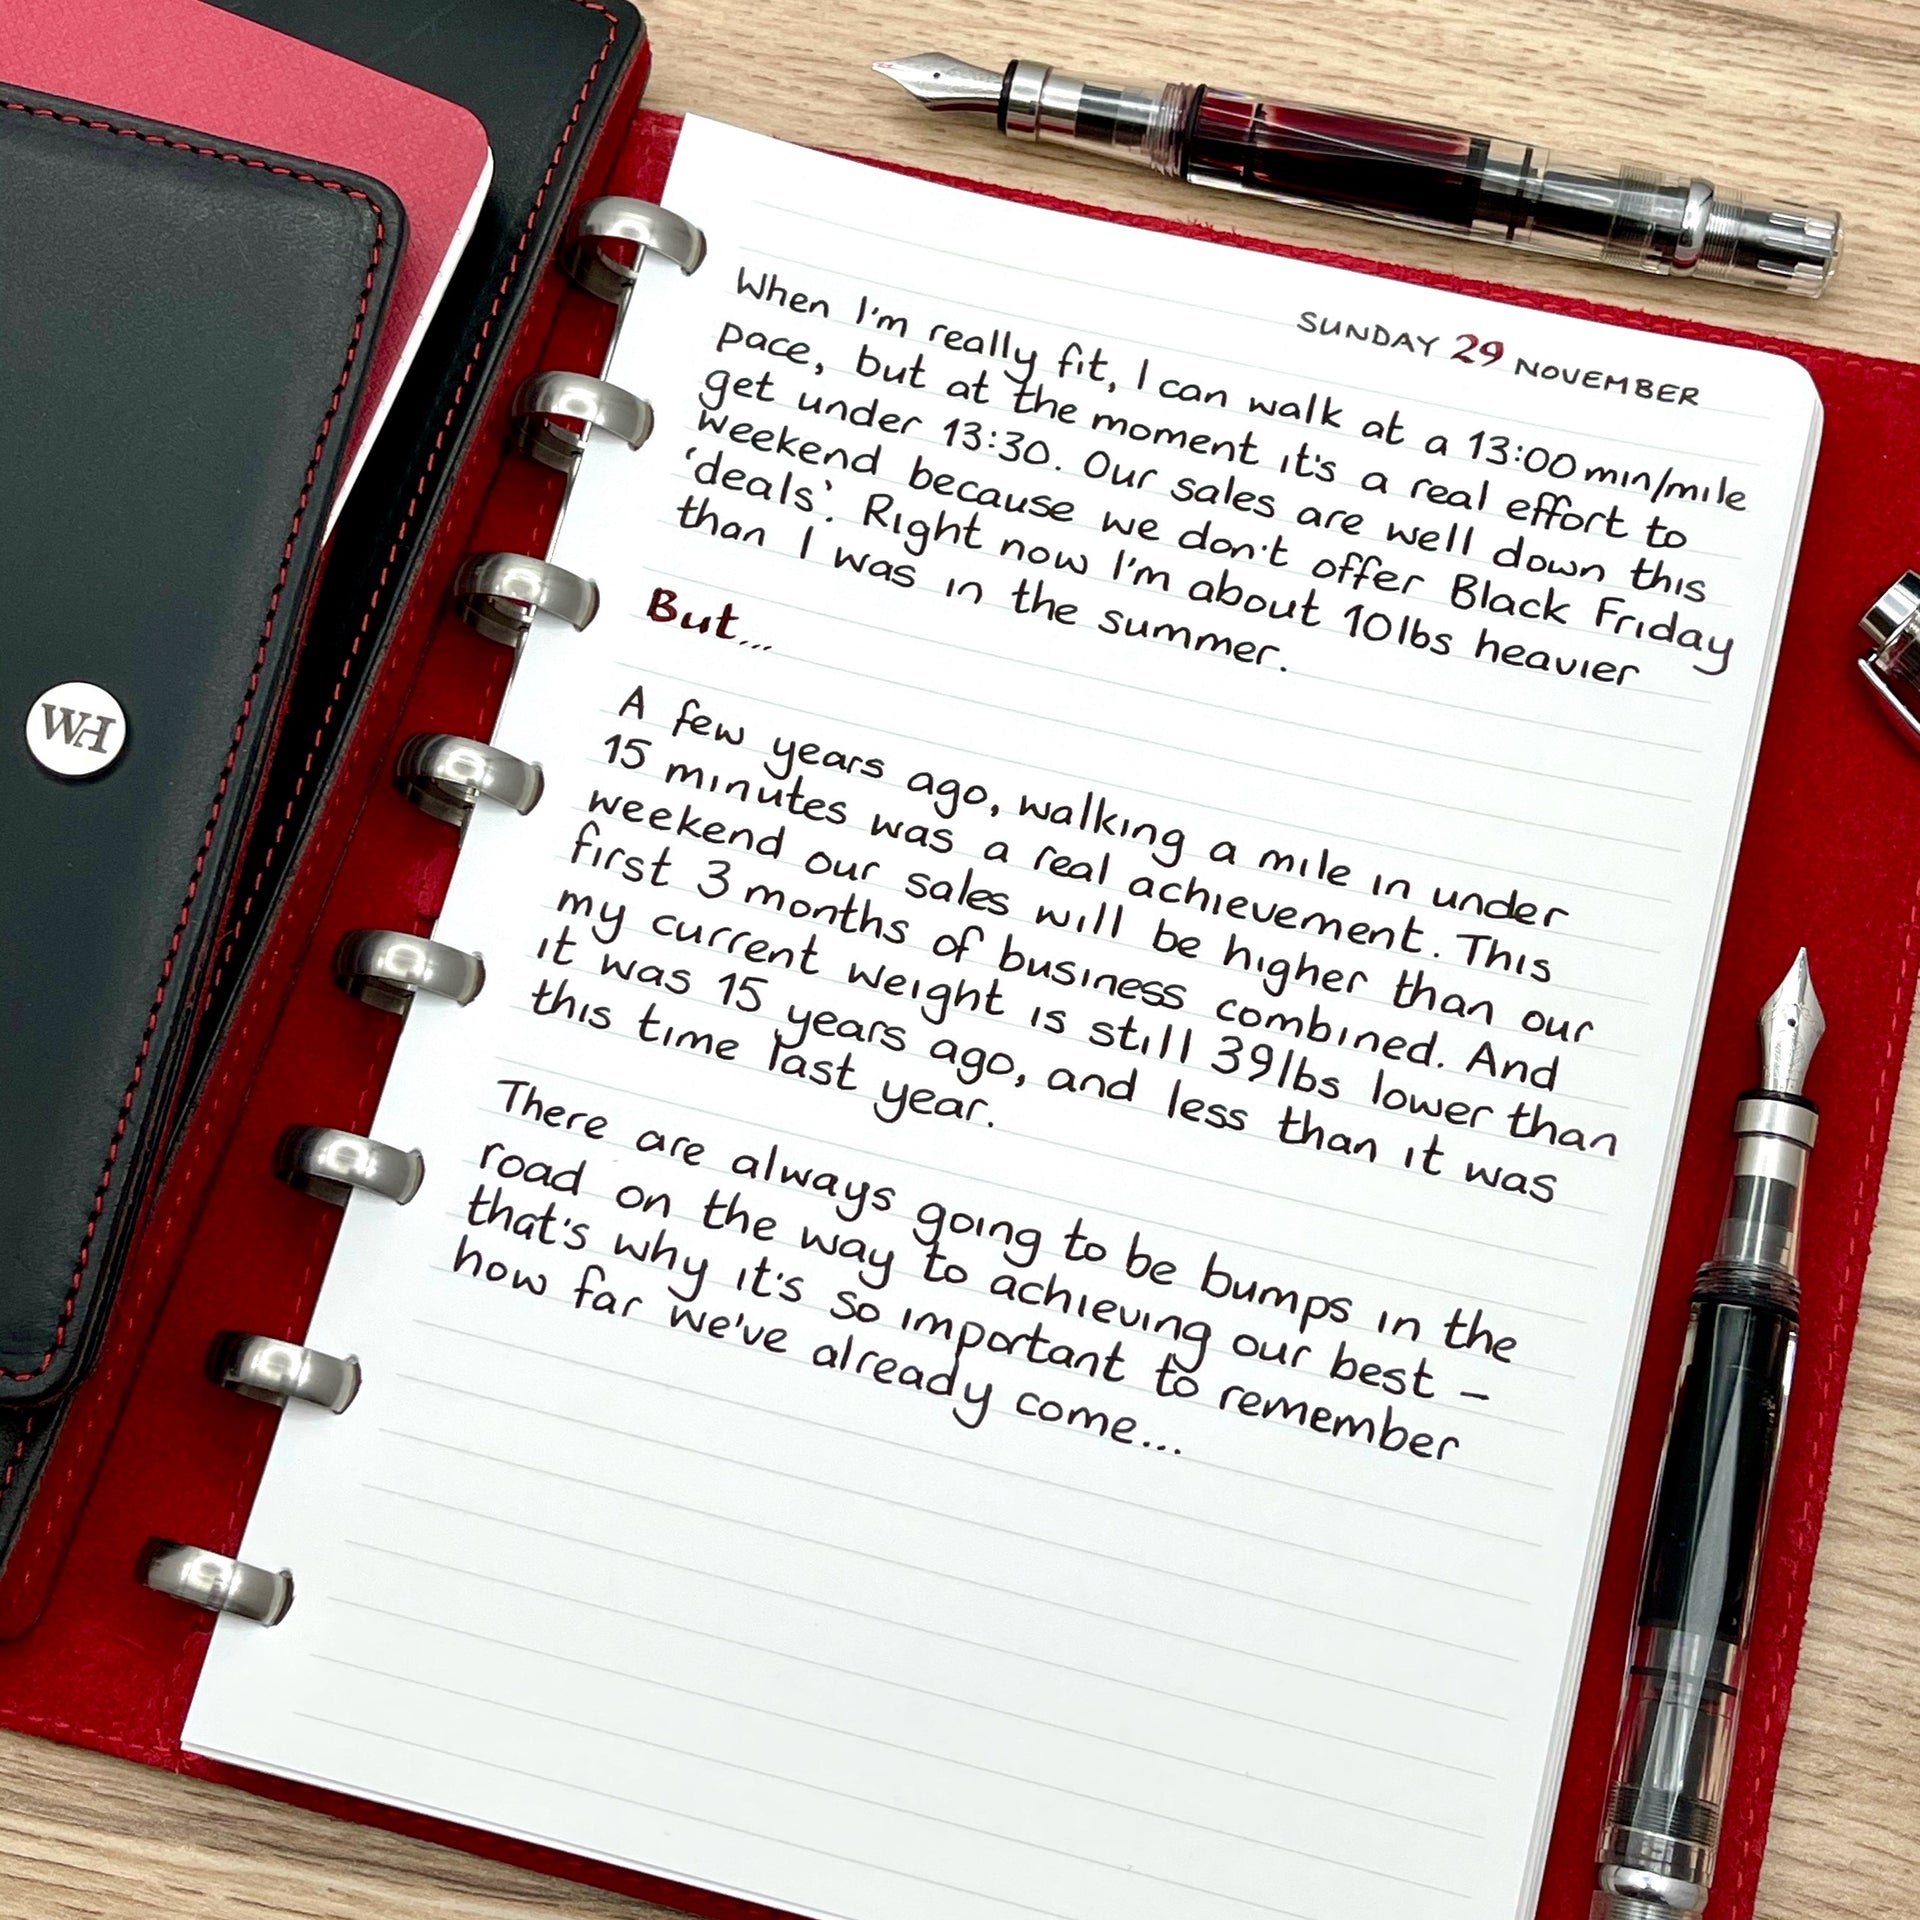 SUNDAY 29 NOVEMBER
When I'm really fit, I can walk at a 13:00 min/mile
pace, but at the moment it's a real effort to
get under 13:30. Our sales are well down this
weekend because we don't offer Black Friday
'deals'. Right now I'm about 10lbs heavier
than I was in the summer.
But...
A few years ago, walking a mile in under
15 minutes was a real achievement. This
weekend our sales will be higher than our
first 3 months of business combined. And
my current weight is still 39lbs lower than
it was 15 years ago, and less than it was
this time last year.
There are always going to be bumps in the
road on the way to achieving our best –
that's why it's so important to remember
how far we've already come...
WH